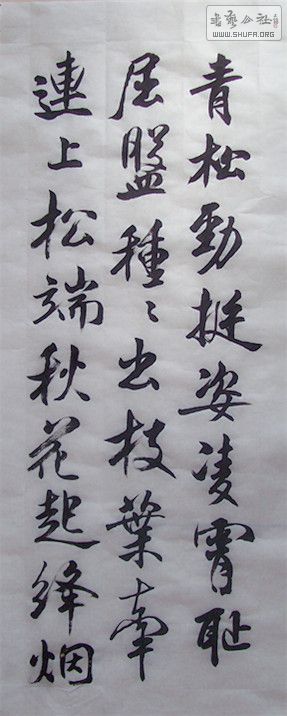 書藝公社
WWW.SHUFA.ORG
青松勁挺姿凌霄耻
屈盤種〻出枝葉牽
連上松端秋花起絳烟